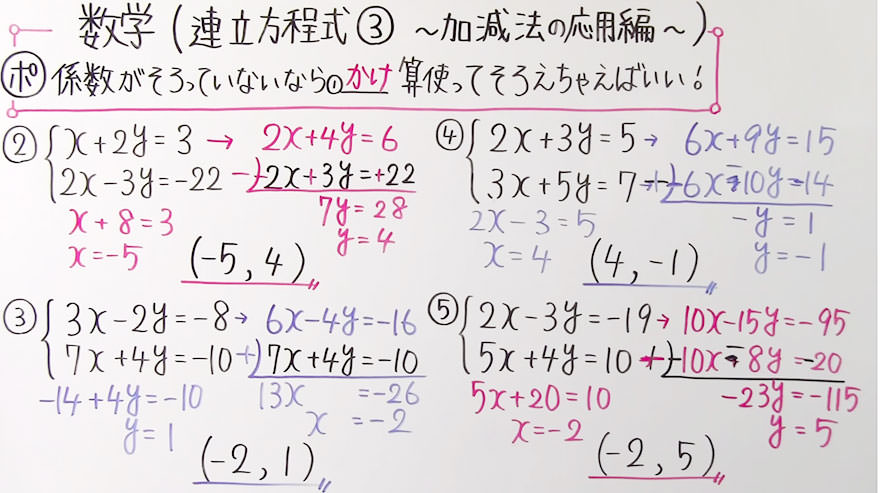 数学(連立方程式③ ~加減法の応用編~)
ポ 係数がそろっていないなら①かけ算使ってそろえちゃえばいい!
② x+2y=3 → 2x+4y=6
2x-3y=-22 -) -2x+3y=+22
7y=28
x+8=3
y=4
x=-5
(-5, 4)
③ 3x-2y=-8 → 6x-4y=-16
7x+4y=-10 +) 7x+4y=-10
-14+4y=-10 13x =-26
y=1 x =-2
(-2, 1)
④ 2x+3y=5 → 6x+9y=15
3x+5y=7 → +) -6x-10y=-14
2x-3=5 -y=1
x=4 y=-1
(4, -1)
⑤ 2x-3y=-19 → 10x-15y=-95
5x+4y=10 +) -10x-8y=-20
5x+20=10 -23y=-115
x=-2 y=5
(-2, 5)